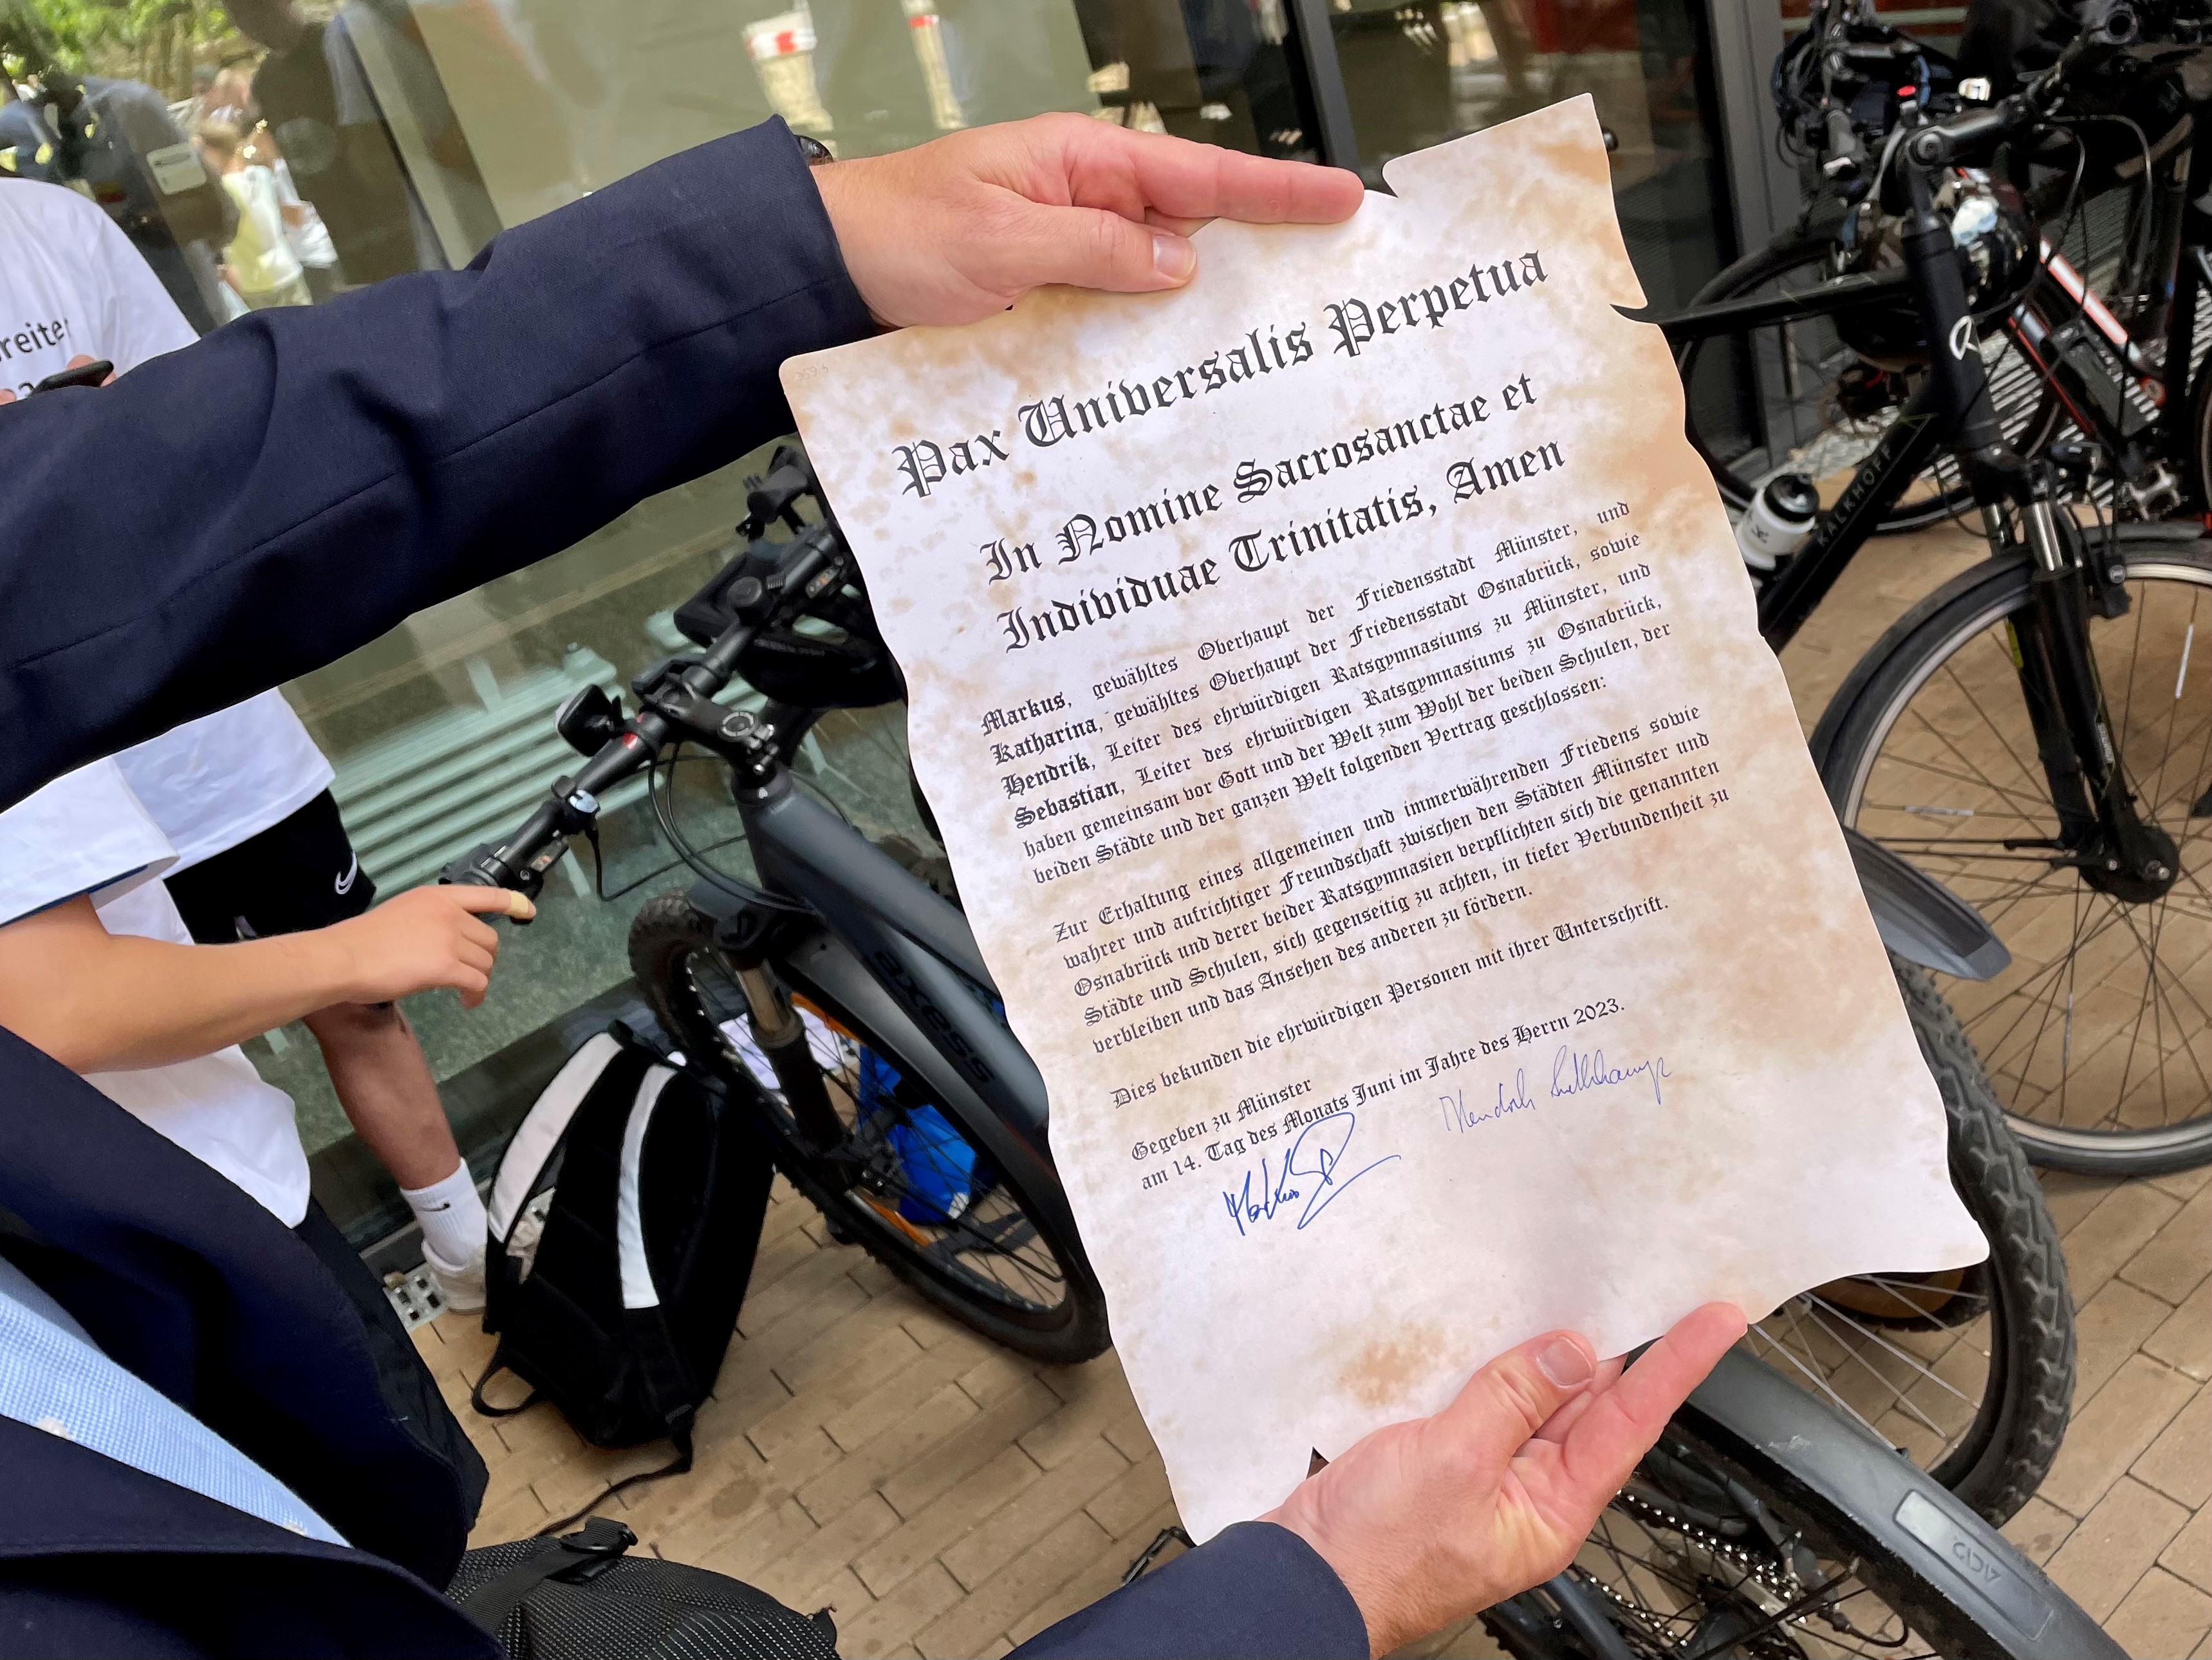 Pax Universalis Perpetua
In Nomine Sacrosanctae et
Individuae Trinitatis, Amen
Markus, gewähltes Oberhaupt der Friedensstadt Münster, und
Katharina, gewähltes Oberhaupt der Friedensstadt Osnabrück, sowie
Hendrik, Leiter des ehrwürdigen Ratsgymnasiums zu Münster, und
Sebastian, Leiter des ehrwürdigen Ratsgymnasiums zu Osnabrück,
haben gemeinsam vor Gott und der Welt zum Wohl der beiden Schulen, der
beiden Städte und der ganzen Welt folgenden Vertrag geschlossen:
Zur Erhaltung eines allgemeinen und immerwährenden Friedens sowie
wahrer und aufrichtiger Freundschaft zwischen den Städten Münster und
Osnabrück und derer beider Ratsgymnasien verpflichten sich die genannten
Städte und Schulen, sich gegenseitig zu achten, in tiefer Verbundenheit zu
verbleiben und das Ansehen des anderen zu fördern.
Dies bekunden die ehrwürdigen Personen mit ihrer Unterschrift.
Gegeben zu Münster
am 14. Tag des Monats Juni im Jahre des Herrn 2023.
KALKHOFF
axess